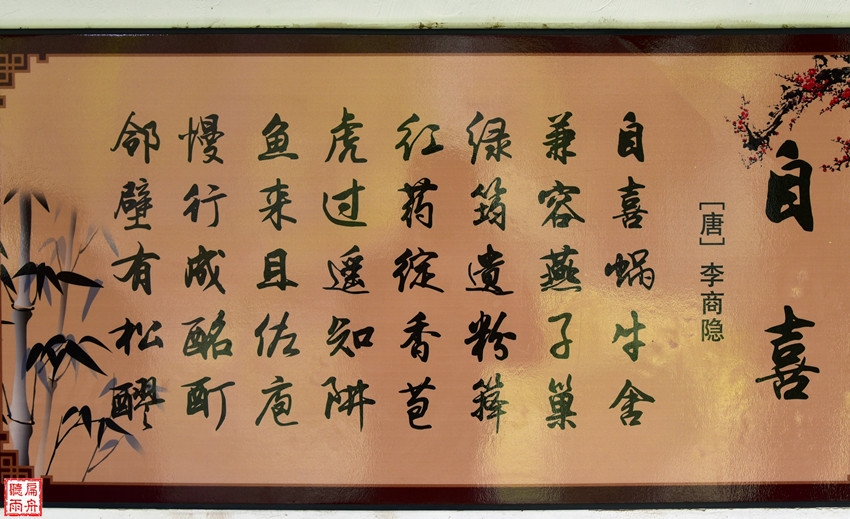 自喜
［唐］李商隐
自喜蜗牛舍
兼容燕子巢
绿筠遗粉箨
红药绽香苞
虎过遥知阱
鱼来且佐庖
慢行成酩酊
邻壁有松醪
扁舟
聽雨